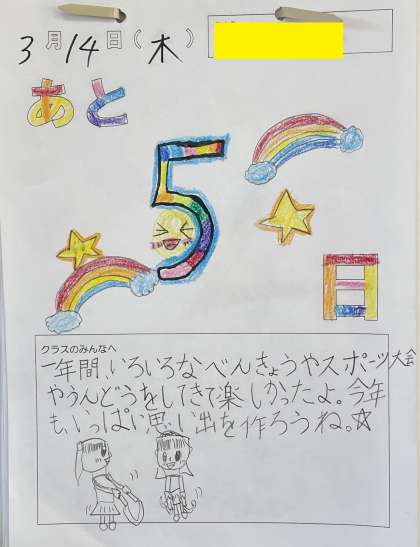 3月14日(木)
あと
5
日
クラスのみんなへ
一年間、いろいろなべんきょうやスポーツ大会
やうんどうをしてきて楽しかったよ。今年
も、いっぱい思い出を作ろうね。☆